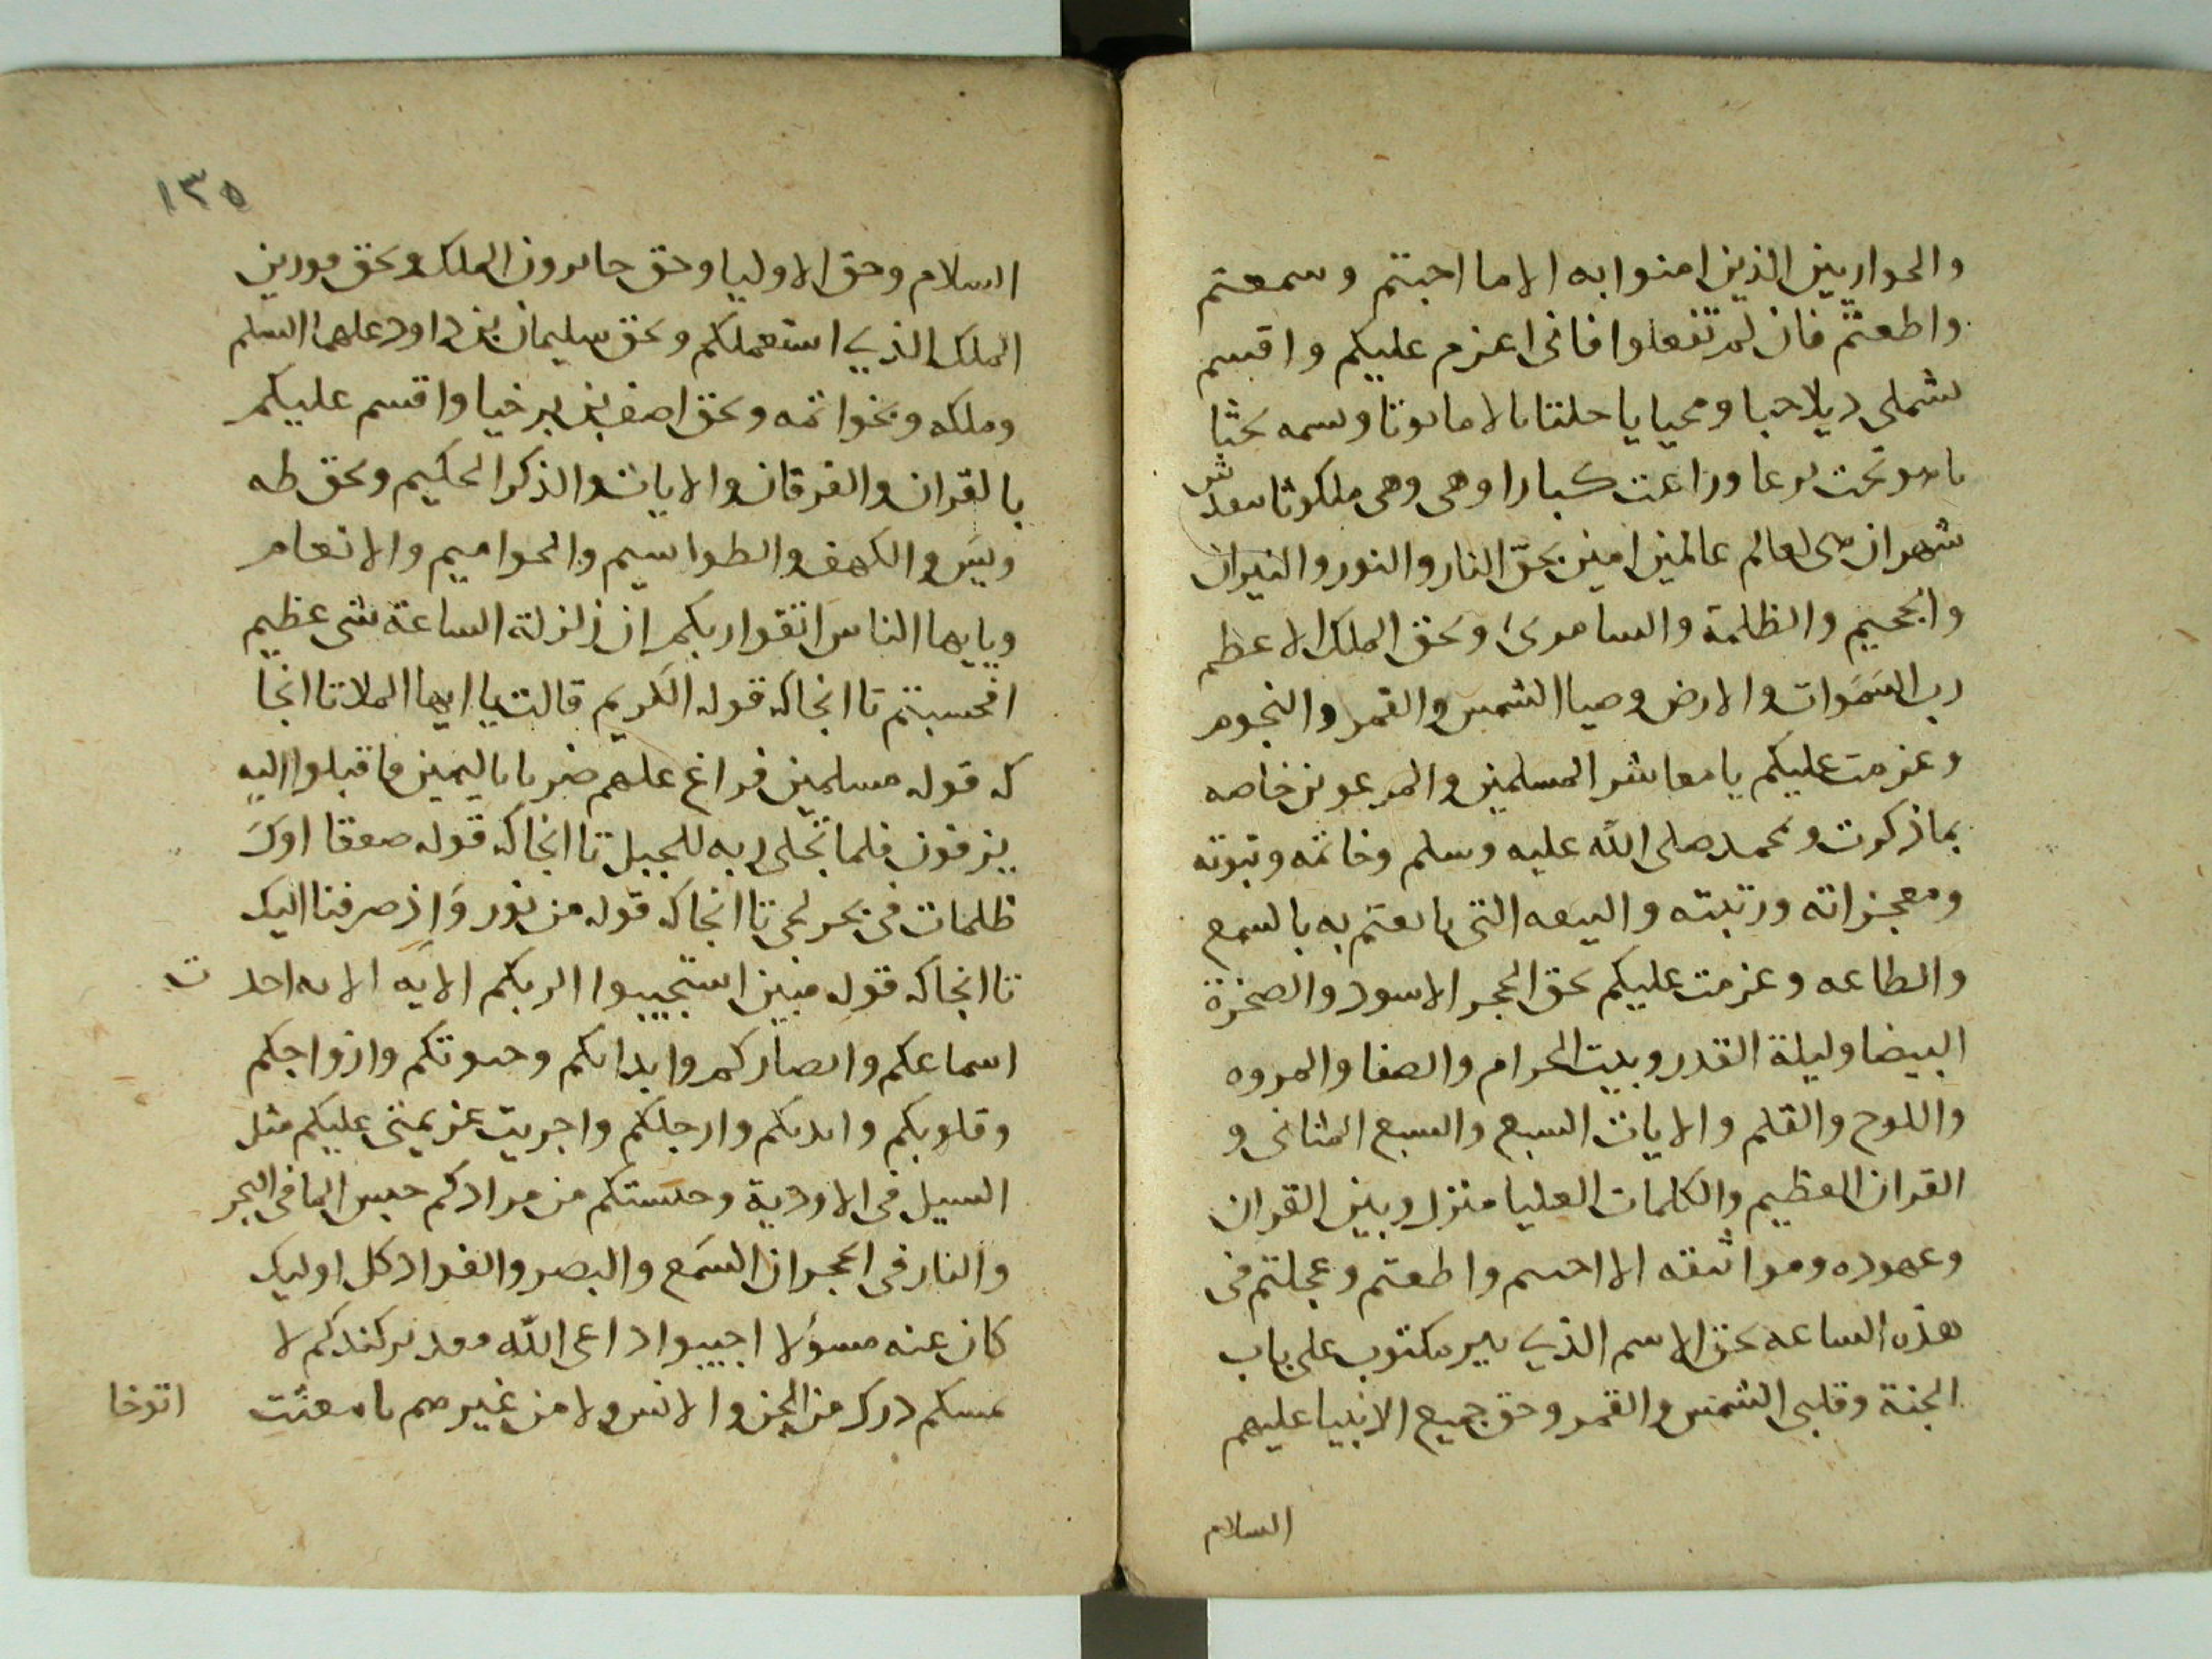 والحواريين الذين امنوا به الا ما اجبتم وسمعتم
واطعتم فان لم تفعلوا فانى اعزم عليكم واقسم
وهى وهى
شهران عالمين امين بحق النار والنور والنيران
والجحيم والظلمة والسامرى وبحق الملك الاعظم
رب السموات والارض وضيا الشمس والقمر والنجوم
وعزمت عليكم يا معاشر المسلمين خاصه
بما ذكرت ومحمد صلى الله عليه وسلم وخاتمه ونبوته
ومعجزاته ورتبته والبيعه التى بايعتم به بالسمع
والطاعه وعزمت عليكم بحق الحجر الاسود والصخرة
البيضا وليلة القدر وبيت الحرام والصفا والمروه
واللوح والقلم والايات السبع والسبع المثانى و
القران العظيم والكلمات العليا منزل وبين القران
وعهوده ومواثيقه الا اجبتم واطعتم وعجلتم فى
هذه الساعه بحق الاسم الذي مكتوب على باب
الجنة وقلبى الشمس والقمر وحق جميع الانبيا عليهم
السلام
١٣٥
السلام وحق الاوليا وحق الملك وبحق
الملك الذي استعملكم وبحق سليمان بن داود عليهما السلم
وملكه وبخواتمه وبحق اصف بن برخيا واقسم عليكم
بالقران والفرقان والايات والذكر الحكيم وبحق طه
ويس والكهف والطواسيم والحواميم والانعام
ويايها الناس اتقوا ربكم ان زلزلة الساعة شى عظيم
افحسبتم تا انجاكه قوله الكريم قالت يا ايها الملا تا انجا
كه قوله مسلمين فراغ عليهم ضربا باليمين فاقبلوا اليه
يزفون فلما تجلى ربه للجبل تا انجاكه قوله صعقا اوك
ظلمات فى بحر لجى تا انجاكه قوله من نور واذ صرفنا اليك
تا انجاكه قوله مبين استجيبوا لربكم الايه الايه اخذت
اسماعكم وابصاركم وابدانكم وازواجكم
وقلوبكم وايديكم وارجلكم واجريت عزيمتى عليكم مثل
السيل فى الاودية وحبستكم من مرادكم حبس الما فى البحر
والنار فى الحجر ان السمع والبصر والفواد كل اوليك
كان عنه مسؤلا اجيبوا داعى الله لا
من الجن والانس ولا من غيرهم
اتوخا